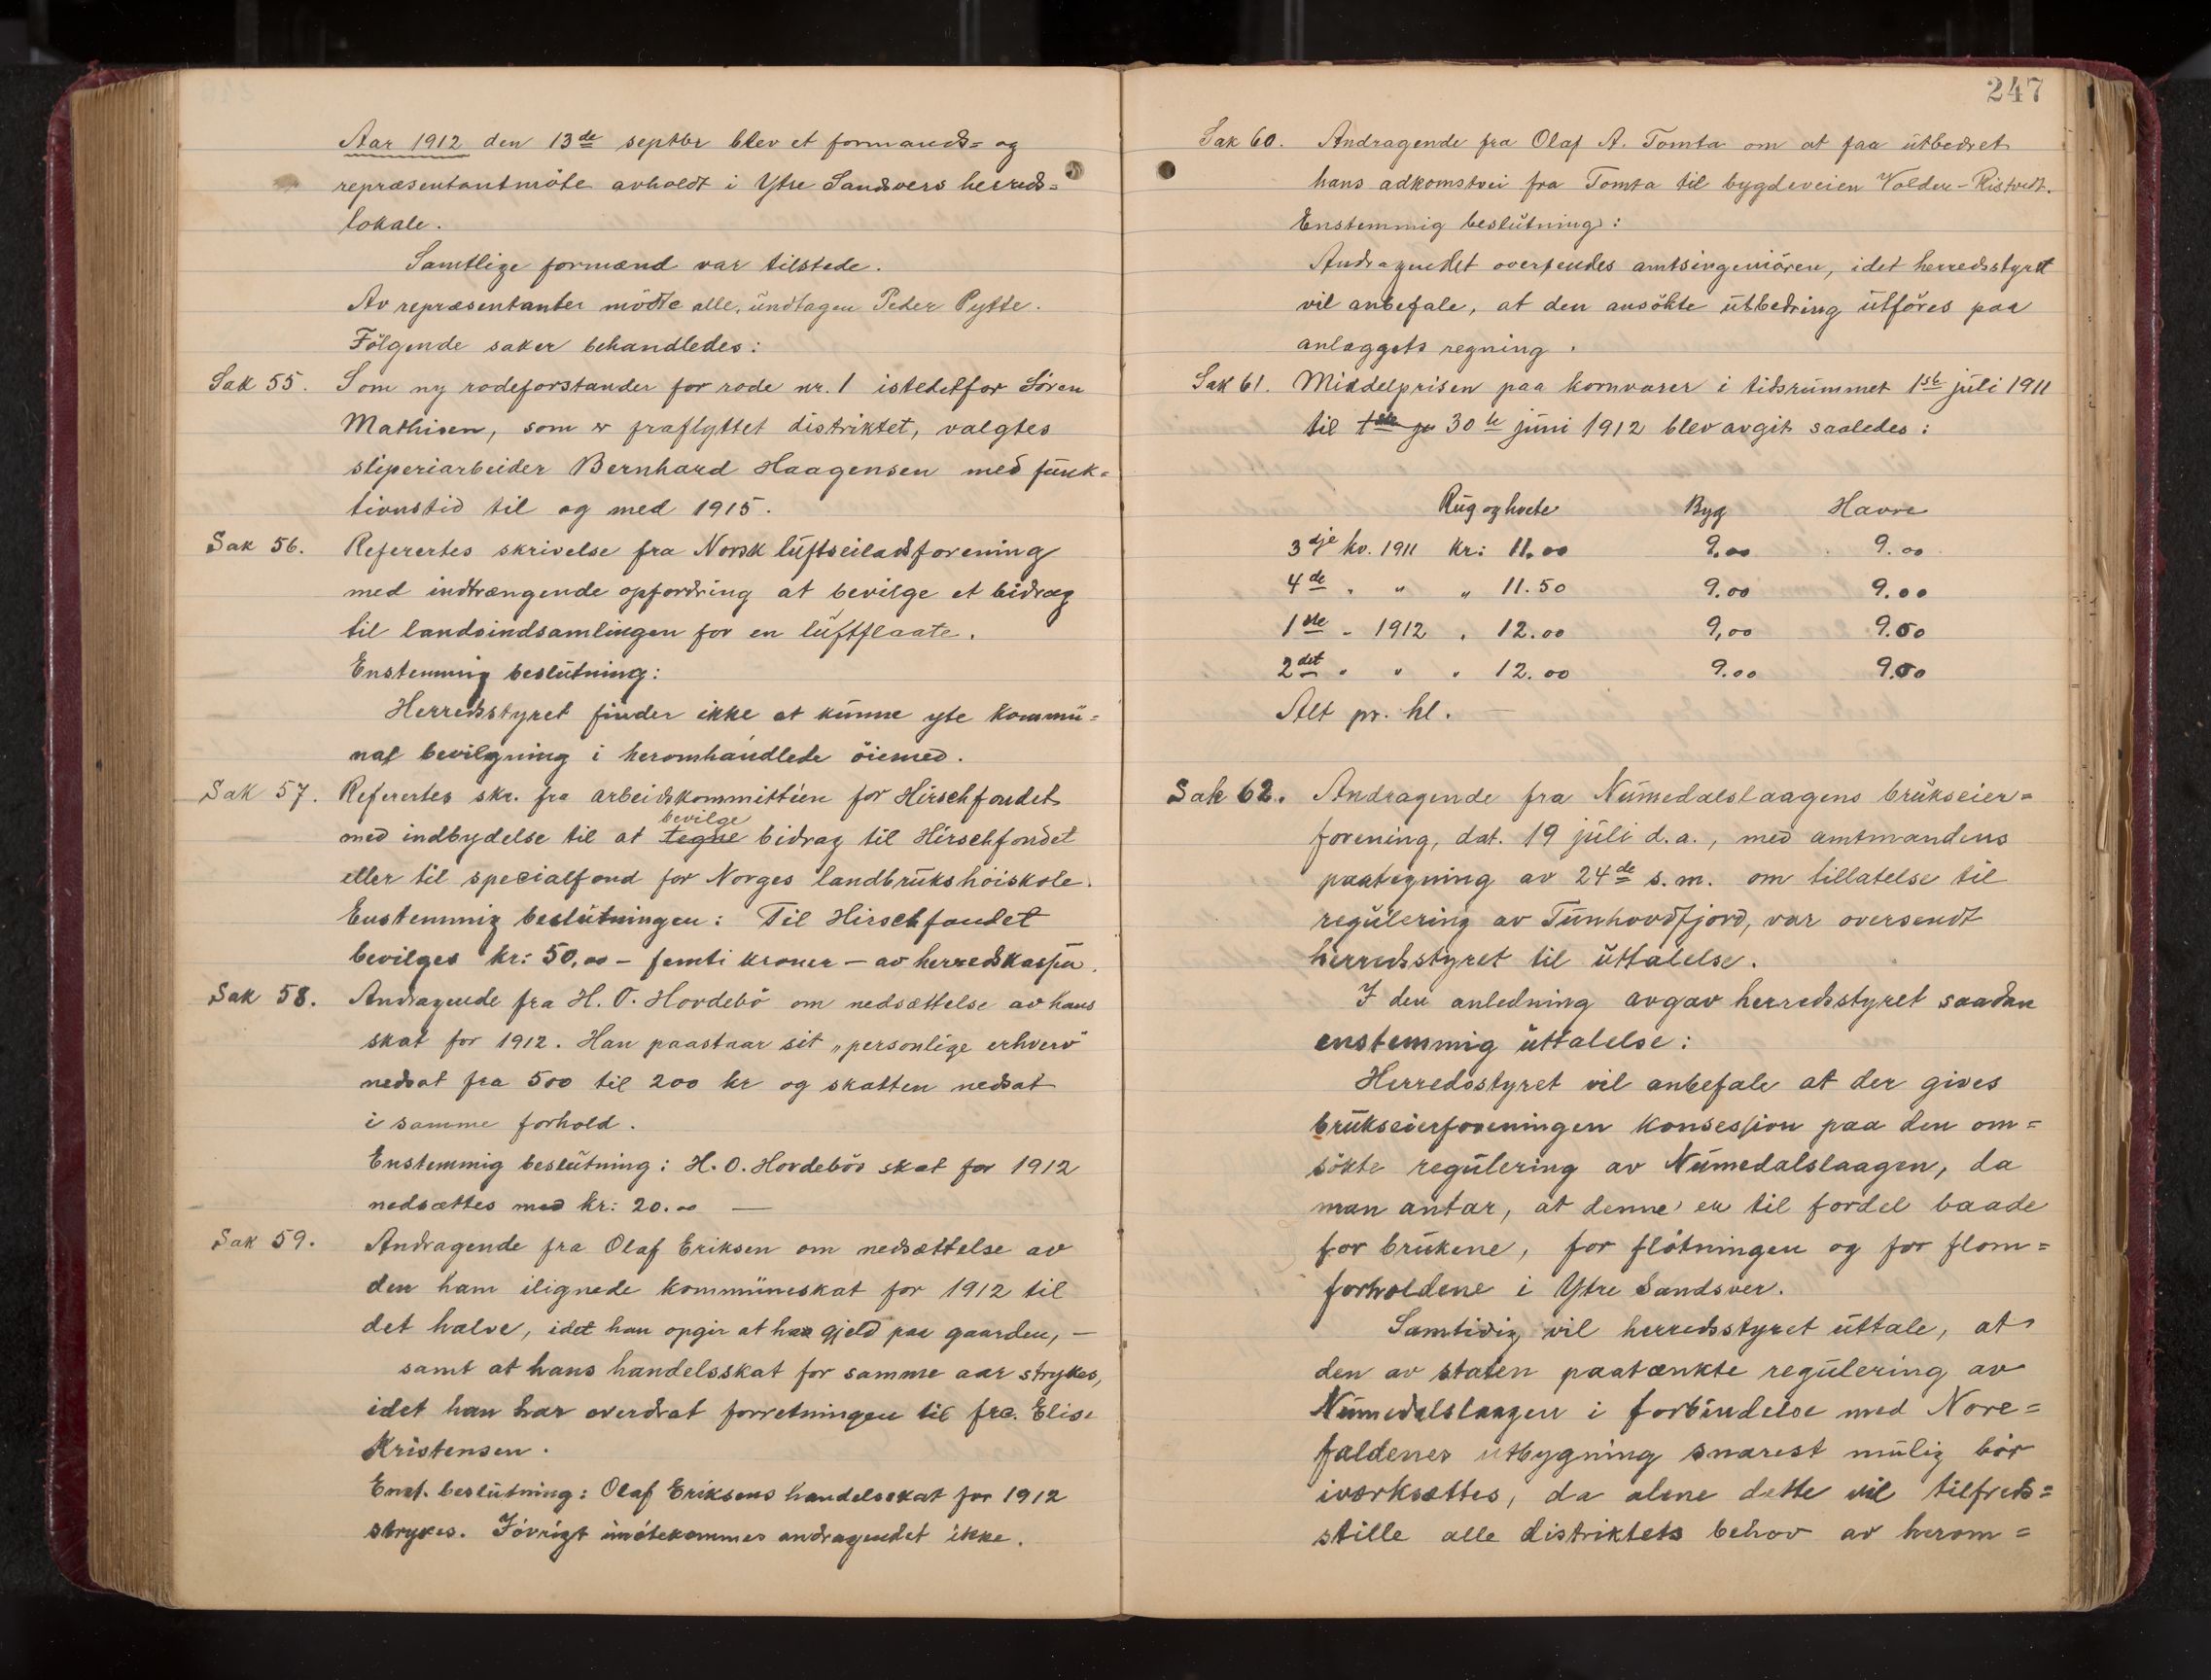 Aar 1912 den 13de septbr blev et formands= og
repræsentantmöte avholdt i Ytre Sandsvers herreds=
lokale.
Samtlige formænd var tilstede.
Av repræsentanter mödte alle, undtagen Peder Pytte.
Fölgende saker behandledes:
Sak 55. Som ny rodeforstander for rode nr. 1 istedetfor Sören
Mathisen, som er fraflyttet distriktet, valgtes
sliperiarbeider Bernhard Haagensen med funk=
tionstid til og med 1915.
Sak 56. Referertes skrivelse fra Norsk luftseiladsforening
med indtrængende opfordring at bevilge et bidrag
til landsindsamlingen for en luftflaate.
Enstemmig beslutning:
Herredsstyret finder ikke at kunne yte kommu=
nal bevilgning i heromhandlede öiemed.
Sak 57. Referertes skr. fra arbeidskommittéen for Hirschfondet
bevilge
med indbydelse til at tegne bidrag til Hirschfondet
eller til specialfond for Norges landbrukshöiskole.
Enstemmig beslutningen: Til Hirschfondet
bevilges kr: 50,00 – femti kroner – av herredskassen.
Sak 58. Andragende fra H. O. Hordebö om nedsættelse av hans
skat for 1912. Han paastaar sit „personlige erhverv"
nedsat fra 500 til 200 kr og skatten nedsat
i samme forhold.
Enstemmig beslutning: H. O. Hordebös skat for 1912
nedsættes med kr: 20.00 —
Sak 59. Andragende fra Olaf Eriksen om nedsættelse av
den ham ilignede kommuneskat for 1912 til
det halve, idet han opgir at ha gjeld paa gaarden, —
samt at hans handelsskat for samme aar strykes,
idet han har overdrat forretningen til frø. Elise
Kristensen.
Enst. beslutning: Olaf Eriksens handelsskat for 1912
strykes. Iövrigt imötekommes andragendet ikke.
247
Sak 60. Andragende fra Olaf A. Tomta om at faa utbedret
hans adkomstvei fra Tomta til bygdeveien Volden–Ristvedt.
Enstemmig beslutning:
Andragendet oversendes amtsingeniören, idet herredsstyret
vil anbefale, at den ansökte utbedring utföres paa
anlæggets regning.
Sak 61. Middelprisen paa kornvarer i tidsrummet 1ste juli 1911
til 1ste ju 30te juni 1912 blev avgit saaledes:
Rug og hvete Byg Havre
3dje kv. 1911 kr: 11.00 9.00 9.00
4de " " " 11.50 9.00 9.00
1ste " 1912 " 12.00 9,00 9.50
2det " " " 12.00 9.00 9.50
Alt pr. hl. —
Sak 62. Andragende fra Numedalslaagens brukseier=
forening, dat. 19 juli d.a., med amtmandens
paategning av 24de s.m. om tillatelse til
regulering av Tunhovdfjord, var oversendt
herredsstyret til uttalelse.
I den anledning avgav herredsstyret saadan
enstemmig uttalelse:
Herredsstyret vil anbefale at der gives
brukseierforeningen konsession paa den om=
sökte regulering av Numedalslaagen, da
man antar, at denne er til fordel baade
for brukene, for flötningen og for flom=
forholdene i Ytre Sandsver.
Samtidig vil herredsstyret uttale, at
den av staten paatænkte regulering av
Numedalslaagen i forbindelse med Nore=
faldenes utbygning snarest mulig bör
iværksættes, da alene dette vil tilfreds=
stille alle distriktets behov av herom=